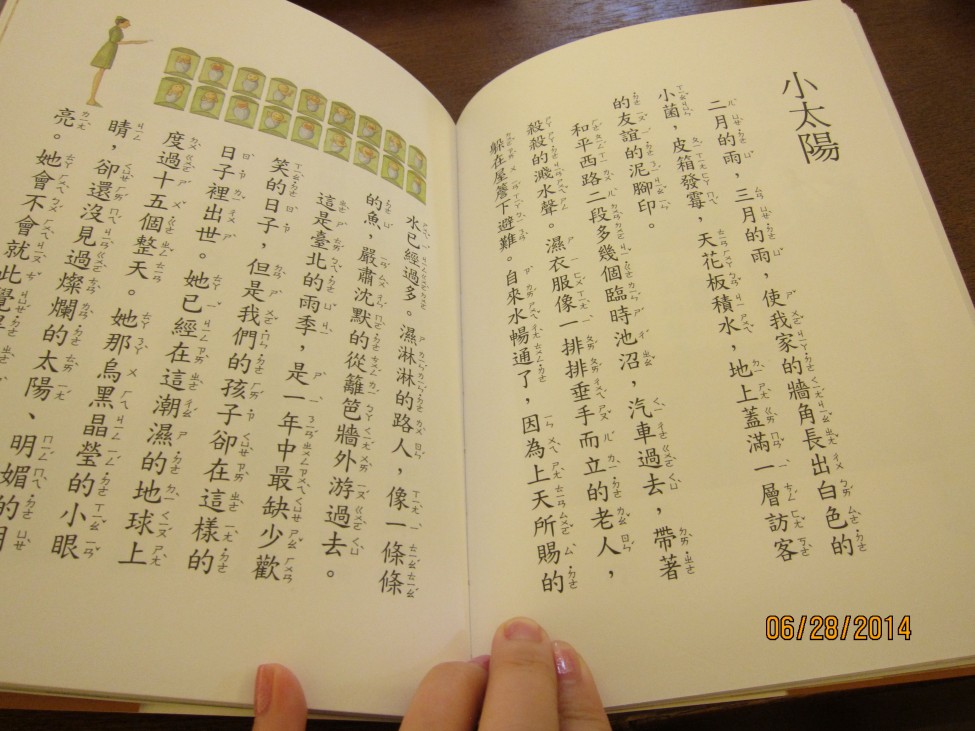 小太陽
二月的雨，三月的雨，使我家的牆角長出白色的
小菌，皮箱發霉，天花板積水，地上蓋滿一層訪客
的友誼的泥腳印。
和平西路二段多幾個臨時池沼，汽車過去，帶著
殺殺的濺水聲。濕衣服像一排排垂手而立的老人，
躲在屋簷下避難。自來水暢通了，因為上天所賜的
水已經過多。濕淋淋的路人，像一條條
的魚，嚴肅沈默的從籬笆牆外游過去。
這是臺北的雨季，是一年中最缺少歡
笑的日子，但是我們的孩子卻在這樣的
日子裡出世。她已經在這潮濕的地球上
度過十五個整天。她那烏黑晶瑩的小眼
睛，卻還沒見過燦爛的太陽、明媚的
亮。她會不會就此覺
06/28/2014